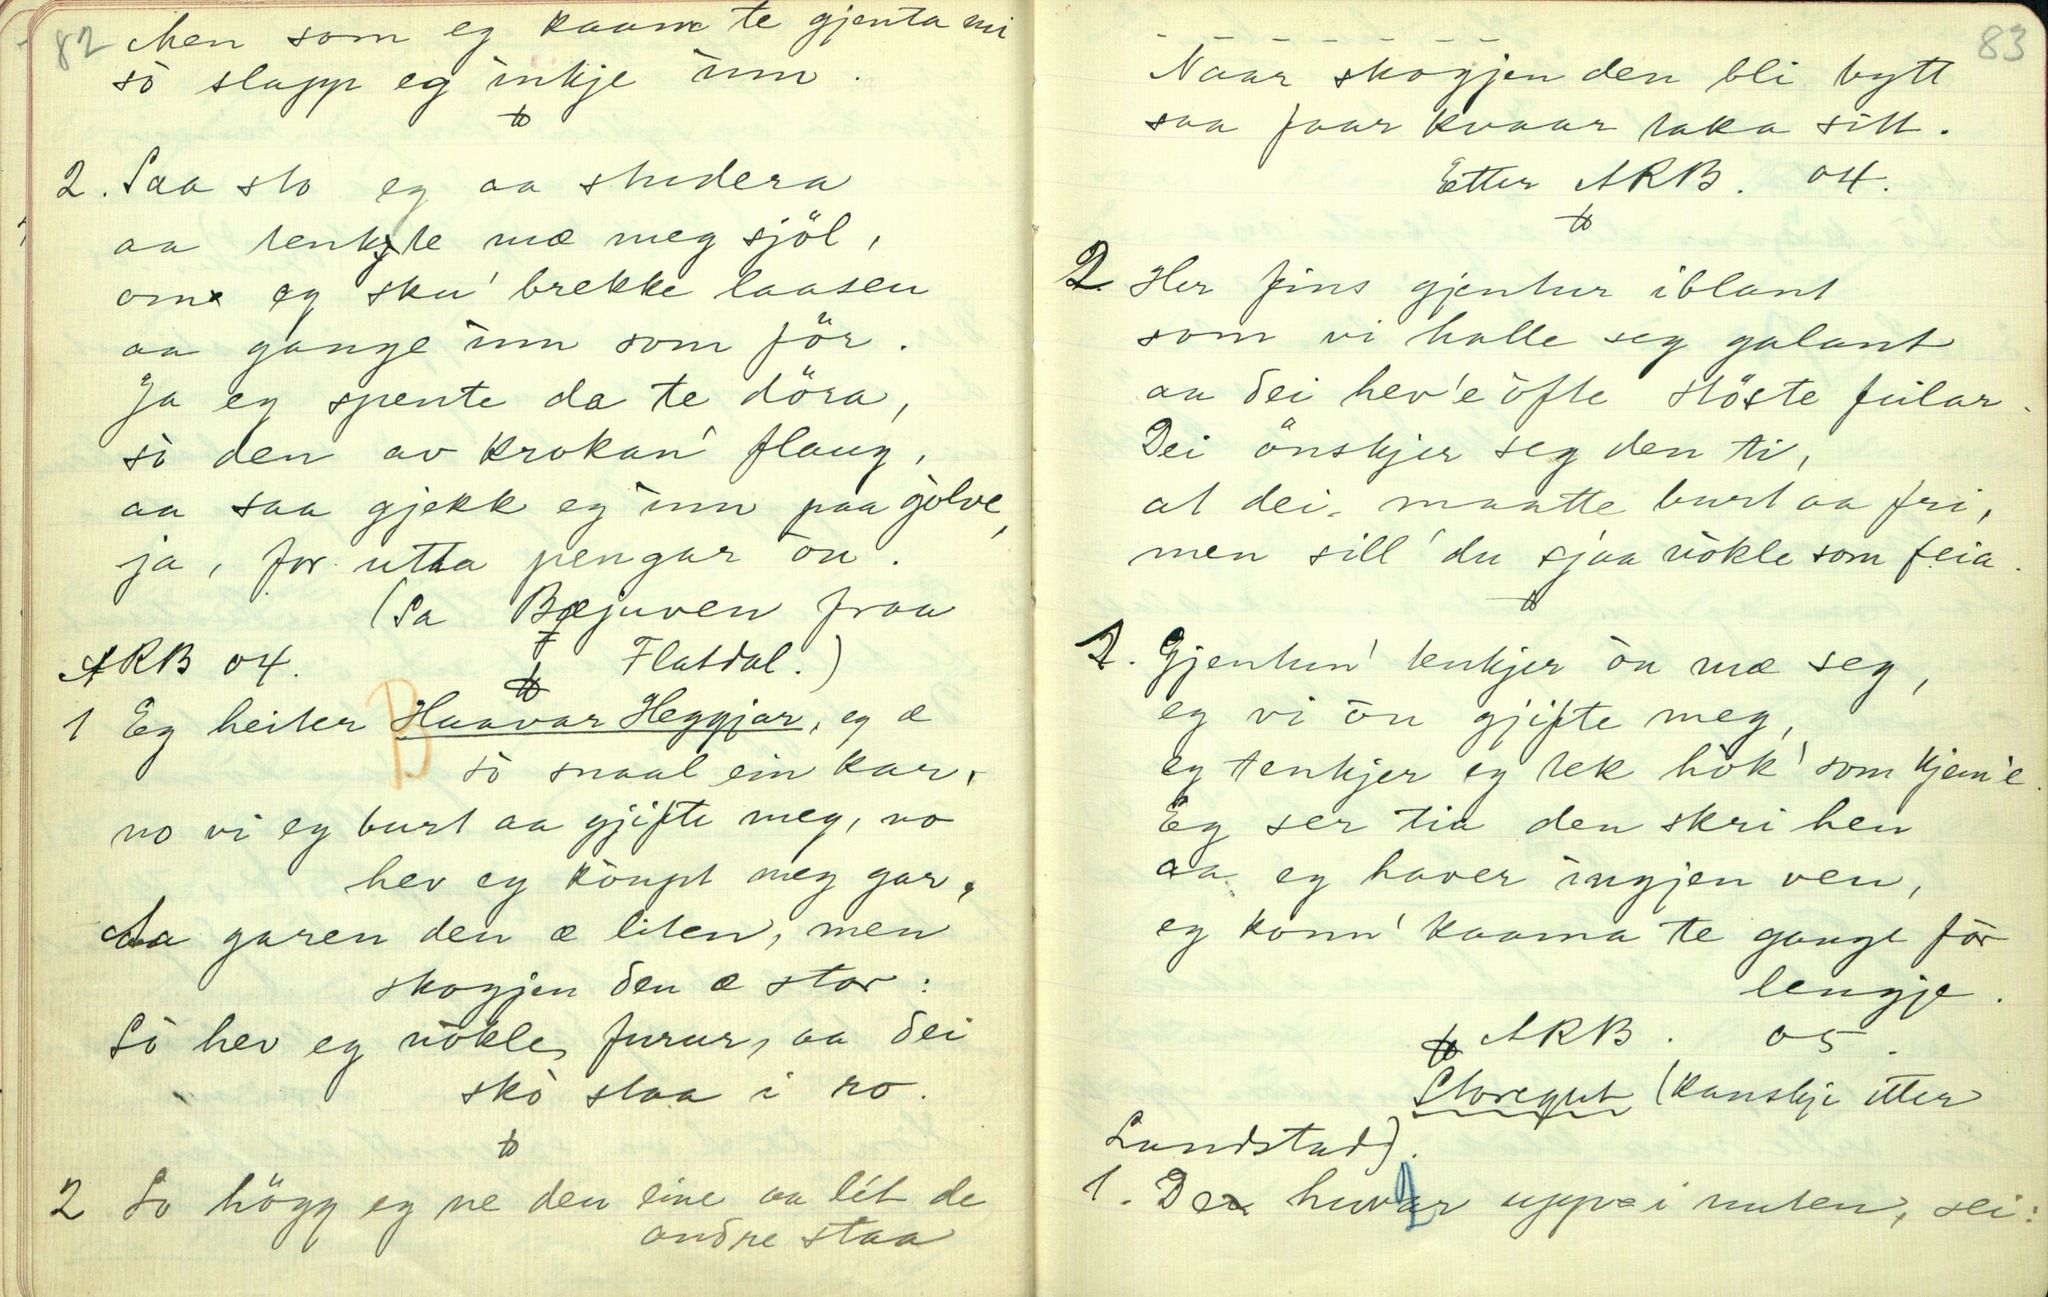 82
Men som eg kaam te gjenta mi
sò slapp eg inkje inn.
2. Saa sto eg aa studera
aa tenkte mæ meg sjöl,
om eg sku' brekke laasen
aa gange inn som för.
Ja eg spente da te döra,
sò den av krokan' flaug,
aa saa gjekk eg inn paa gòlve,
ja, for utta pengar òn.
(Sa Bæjuven fraa
Flatdal.)
ARB 04.
B
1 Eg heiter Haavar Heggjar, eg æ
sò snaal ein kar,
no vi eg burt aa gjifte meg, no
hev eg köupt meg gar,
Aa garen den æ liten, men
skogjen den æ stor:
Sò hev eg nòkle furur, aa dei
skò staa i ro.
2 So högg eg ne den eine aa lét de
andre staa
83
- - - - - - - -
Naar skogjen den bli bytt
saa faar kvaar taka sitt.
Etter ARB. 04.
2. Her fins gjentur iblant
som vi halle seg galant
aa dei hev'e òfte støste feilar.
Dei önskjer seg den ti,
at dei maatte burt aa fri,
men sill' du sjaa nòkle som feia.
2. Gjentun' tenkjer òn mæ seg,
eg vi òn gjifte meg,
eg tenkjer eg tek hòk' som kjem'e.
Eg ser tia den skri hen
aa eg haver ingjen ven,
eg konn' kaama te gange fòr
lengje.
ARB. 05.
Storegut (kanskje etter
Landstad).
1. De huvar uppe i nuten, sei: